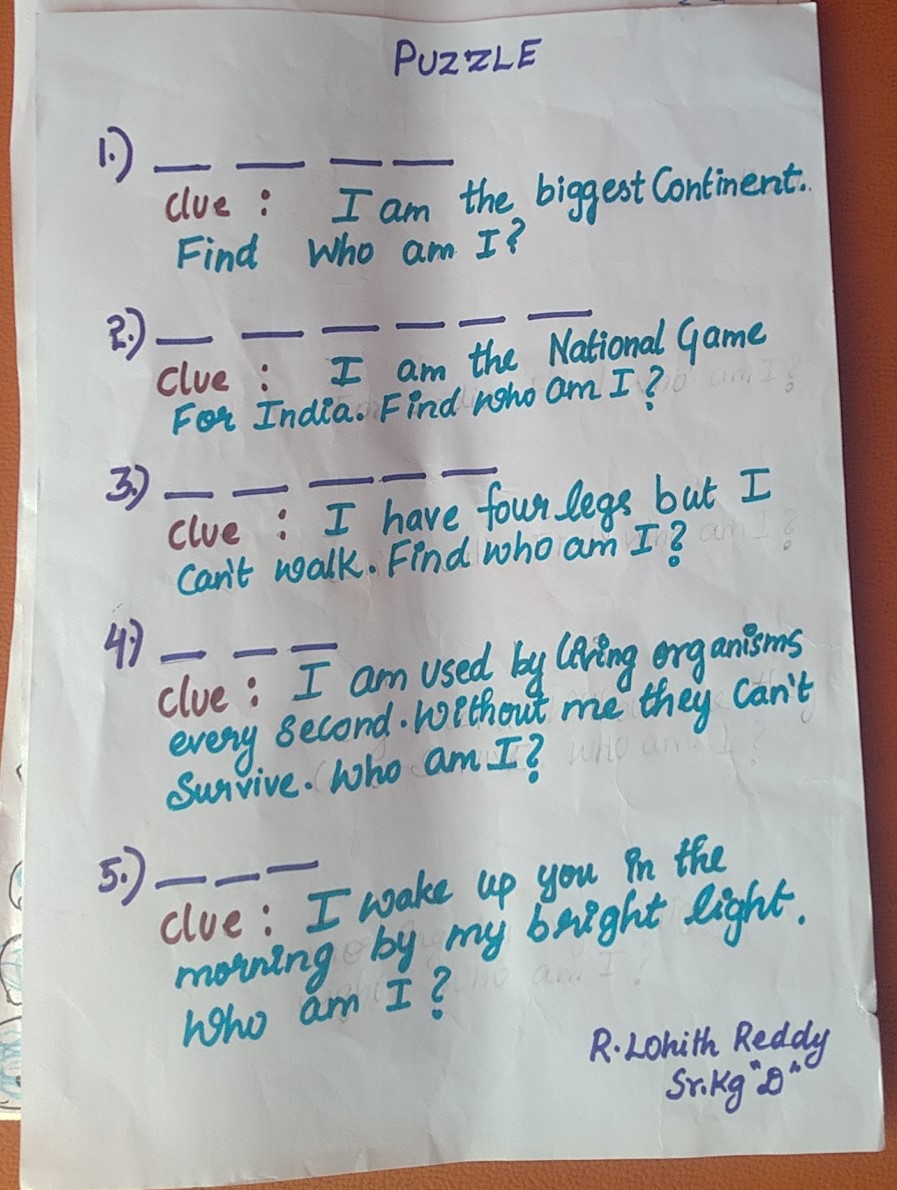 PUZZLE
1.) _ _ _ _
Clue : I am the biggest Continent.
Find Who am I?
2.) _ _ _ _ _ _
Clue : I am the National Game
For India. Find who am I?
3.) _ _ _ _ _
Clue : I have four legs but I
Can't walk. Find who am I?
4.) _ _ _
Clue : I am used by living organisms
every second. Without me they Can't
Survive. Who am I?
5.) _ _ _
Clue : I wake up you in the
morning by my bright light.
Who am I?
R. Lohith Reddy
Sr.Kg "D"